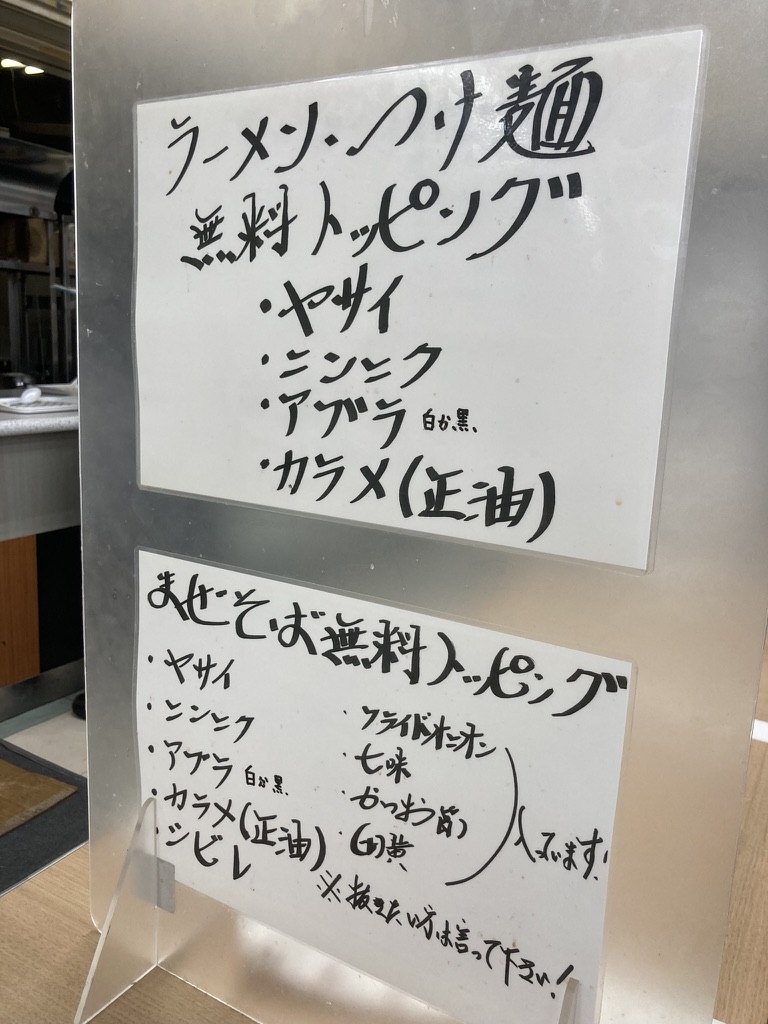 ラーメン・つけ麺
無料トッピング
・ヤサイ
・ニンニク
・アブラ 白か黒、
・カラメ(正油)
まぜそば無料トッピング
・ヤサイ
・ニンニク
・アブラ 白か黒、
・カラメ(正油)
・シビレ
・フライドオニオン
・七味
・かつおう節
・卵黄
入っています!
※抜きたい方は言って下さい!